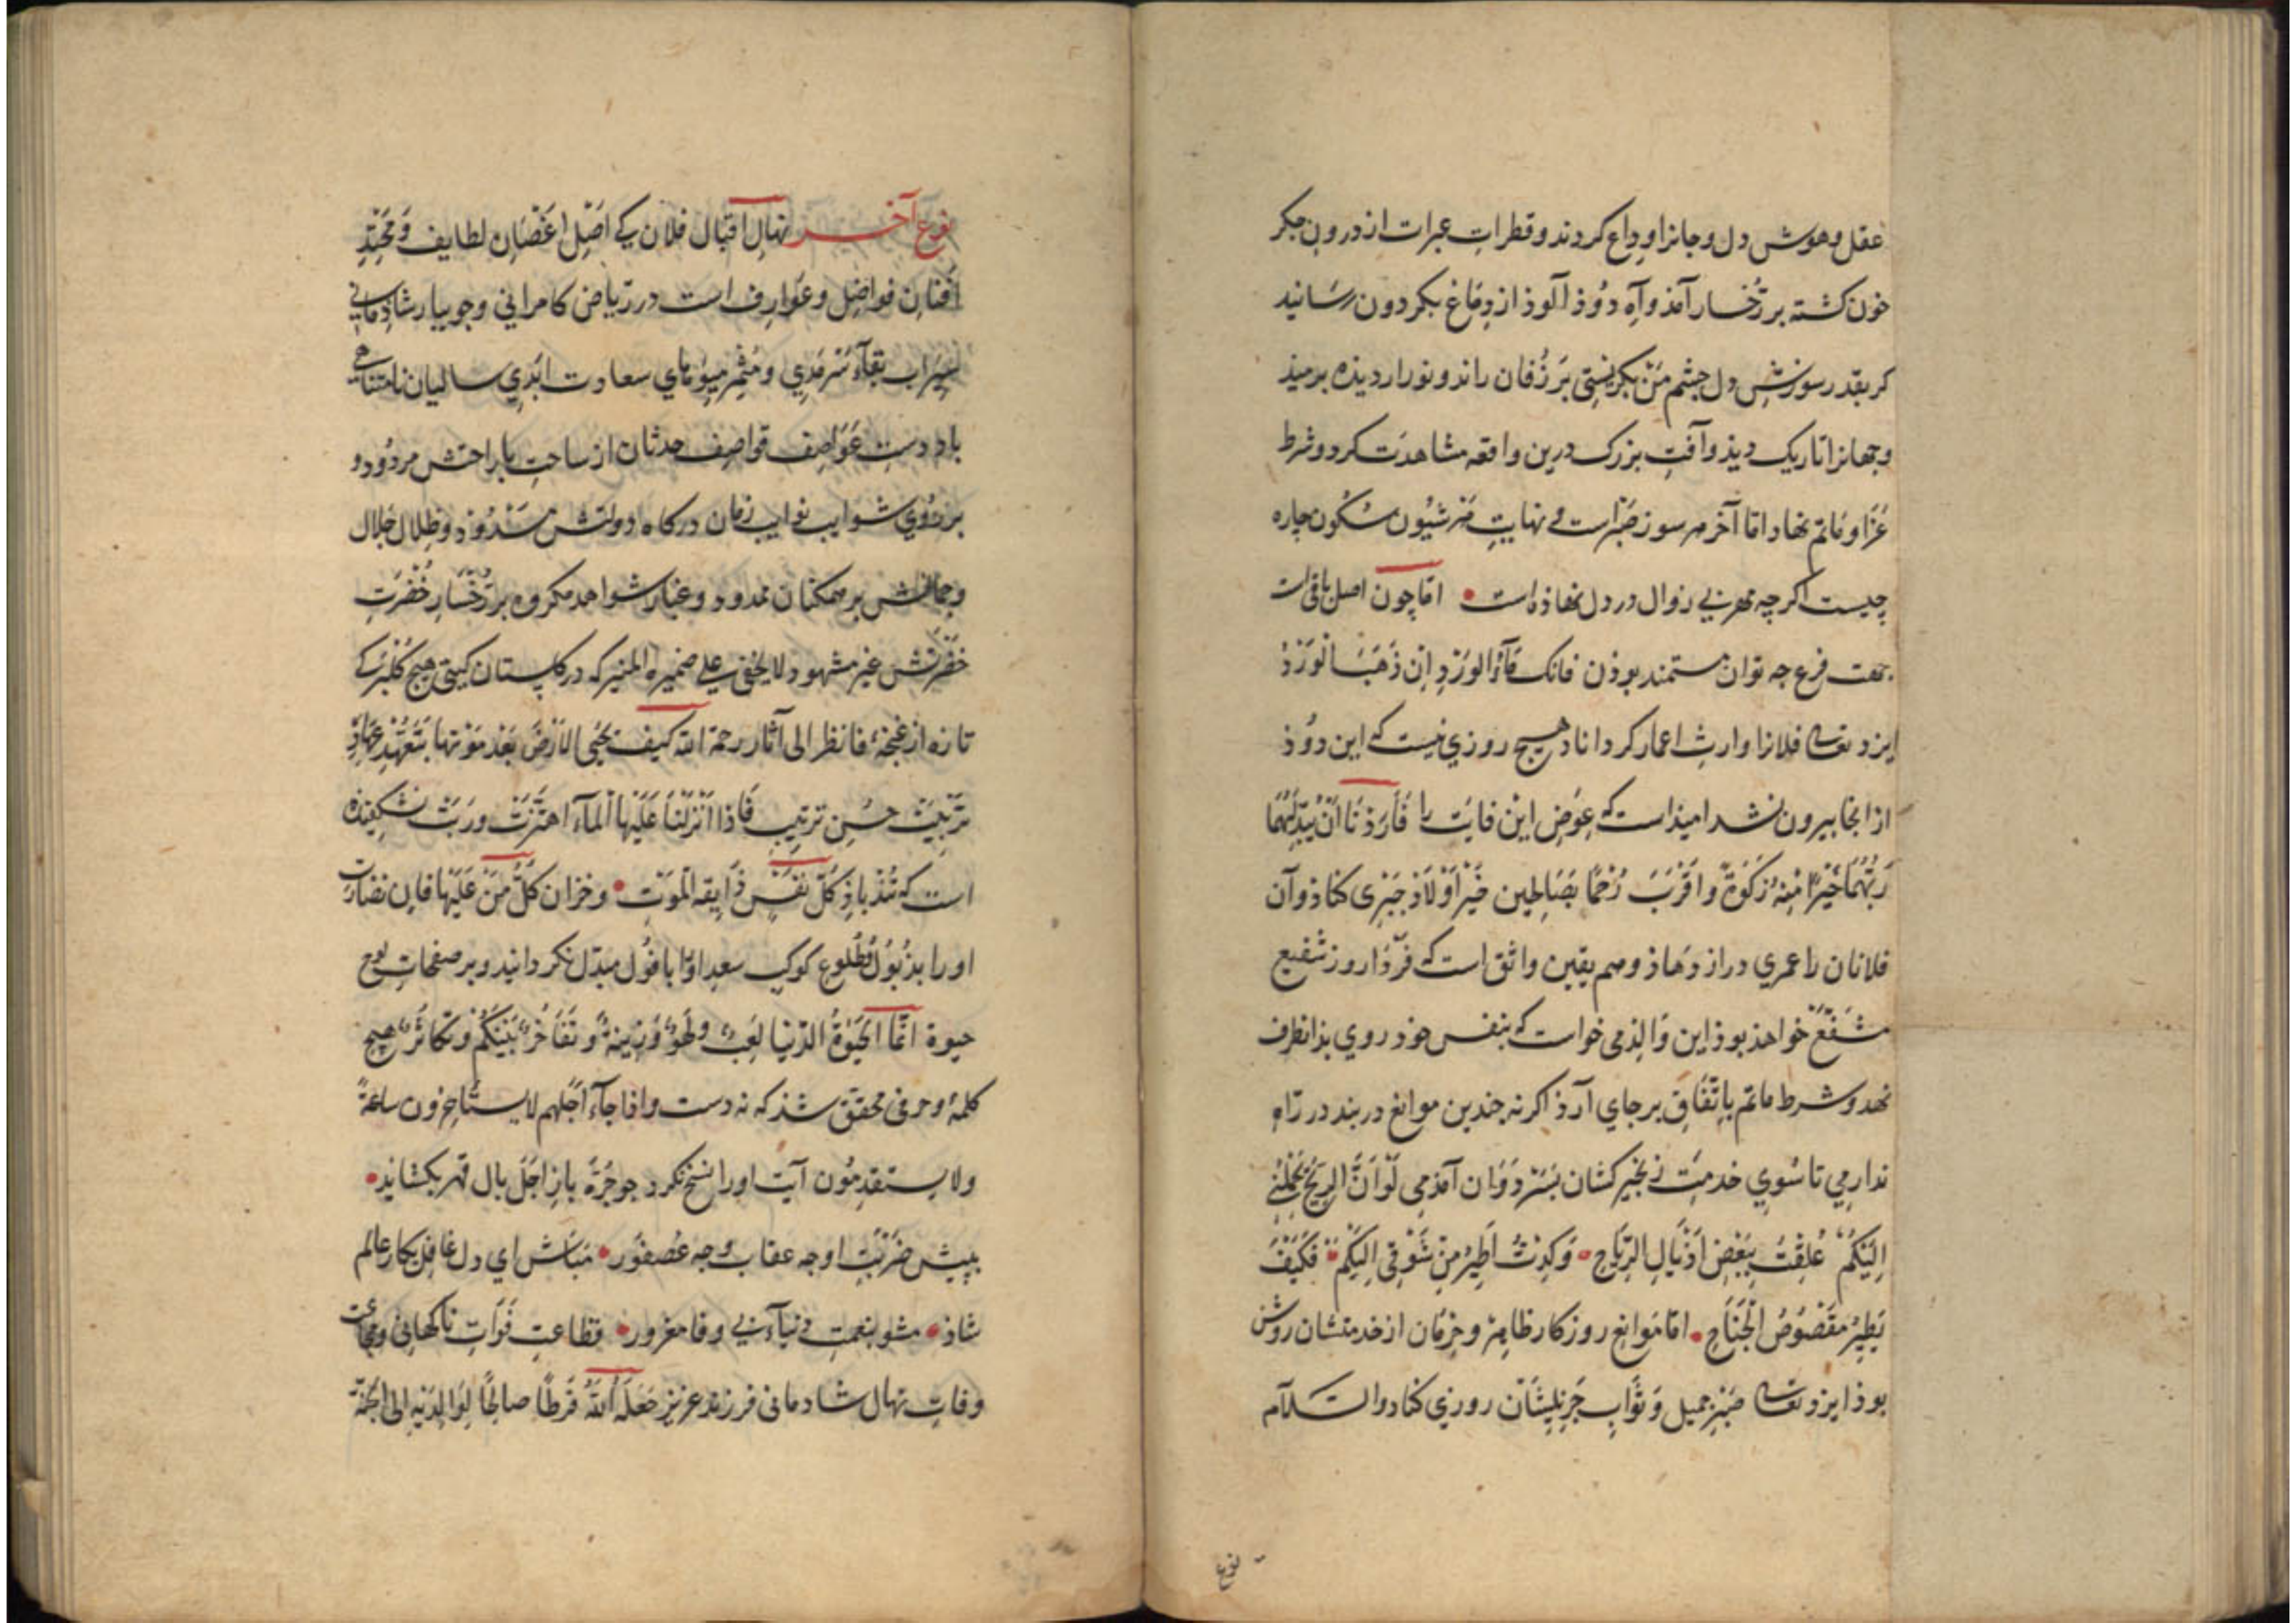 عقل وهوش دل وجانرا وداع کردند وقطرات عبرات از درون جکر
خون کشته بر رخسار آمذ وآه دوذ آلوذ از دماغ بکردون رسانید
کر بقدر سوزش دل جشم من بکریستی بر زفان راند ونور از دیذه برمیذ
وجهانرا تاریک دیذ وآفت بزرک درین واقعه مشاهدت کرد وشرط
عزا وماتم نهاد اما آخر هر سوز صبر است و نهایت هر شیون سکون چاره
چیست اکرچه مهر بی زوال در دل نهاذه است • اما چون اصل باقی است
جهت فرع چه توان مستمند بوذن فانک ماء الورد ان ذهب الورد
ایزد تعالی فلانرا وارث اعمار کرداناد هیچ روزی نیست که این دوذ
از انجا بیرون نشد امیذ است که عوض این فایت را فاردنا ان یبدلهما
ربهما خیرا منه زکوة واقرب رحما بصالحین خیر اولاد جبری کناذ وآن
فلانان را عمری دراز دهاذ وهم یقین واثق است که فردا روز شفیع
مشفع خواهذ بوذ این والذمی خواست که بنفس خوذ روی بذانطرف
نهد وشرط ماتم باتفاق برجای آرذ اکر نه چندین موانع دربند در راه
ندارمی تا سوی خدمت زنجیر کشان بسر دوان آمذمی لو ان الریح تحملنی
الیکم علقت ببعض اذیال الریاح • وکدت اطیر من شوقی الیکم • فکیف
یطیر مقصوص الجناح • اما موانع روزکار ظاهر وحرمان از خدمتشان روشن
بوذ ایزد تعالی صبر جمیل وثواب جزیلیشان روزی کناد والسلام
نوع
نوع آخر نهال اقبال فلان کی اصل اغصان لطایف ومحتد
افنان فواضل وعوارف است در ریاض کامرانی وجویبار شاذمانی
سیراب بقاء سرمدی ومثمر میوهای سعادت ابدی سالیان نامتناهی
باد دست عواصف قواصف حدثان از ساحت با راحتش مردود و
بر روی شوایب نوایب زمان درکاه دولتش مسدوذ وظلال جلال
وجمالش بر همکنان ممدود وغبار شواهد مکروه بر رخسار خضرت
خضرتش غیر مشهود لا یخفی علی ضمیره المنیر که در کلستان کیتی هیچ کلبرکی
تازه از غنچهٔ فانظر الی آثار رحمة الله کیف یحیی الارض بعد موتها بتعهد عهاد
تربیت حسن ترتیب فاذا انزلنا علیها الماء اهتزت وربت نشکفیذه
است که تندباذ کل نفس ذایقة الموت • وخزان کل من علیها فان نضارت
او را بذبول وطلوع کوکب سعد اورا بافول مبدل نکردانید وبر صفحات لوح
حیوة انما الحیوة الدنیا لعب ولهو وزینة وتفاخر بینکم وتکاثر هیچ
کلمهٔ وحرفی محقق نشذ که نه دست واذا جاء اجلهم لا یستاخرون ساعة
ولا یستقدمون آیت اورا نسخ نکرد چو جره باز اجل بال قهر بکشاید •
بپیش ضربت او چه عقاب وچه عصفور • مباش ای دل غافل بکار عالم
شاذ • مشو بنعمت دنیاء بی وفا مغرور • فظاعت فوات ناکهانی وفجاءت
وفات نهال شادمانی فرزند عزیز جعله الله فرطا صالحا لوالدیه الی الجنة